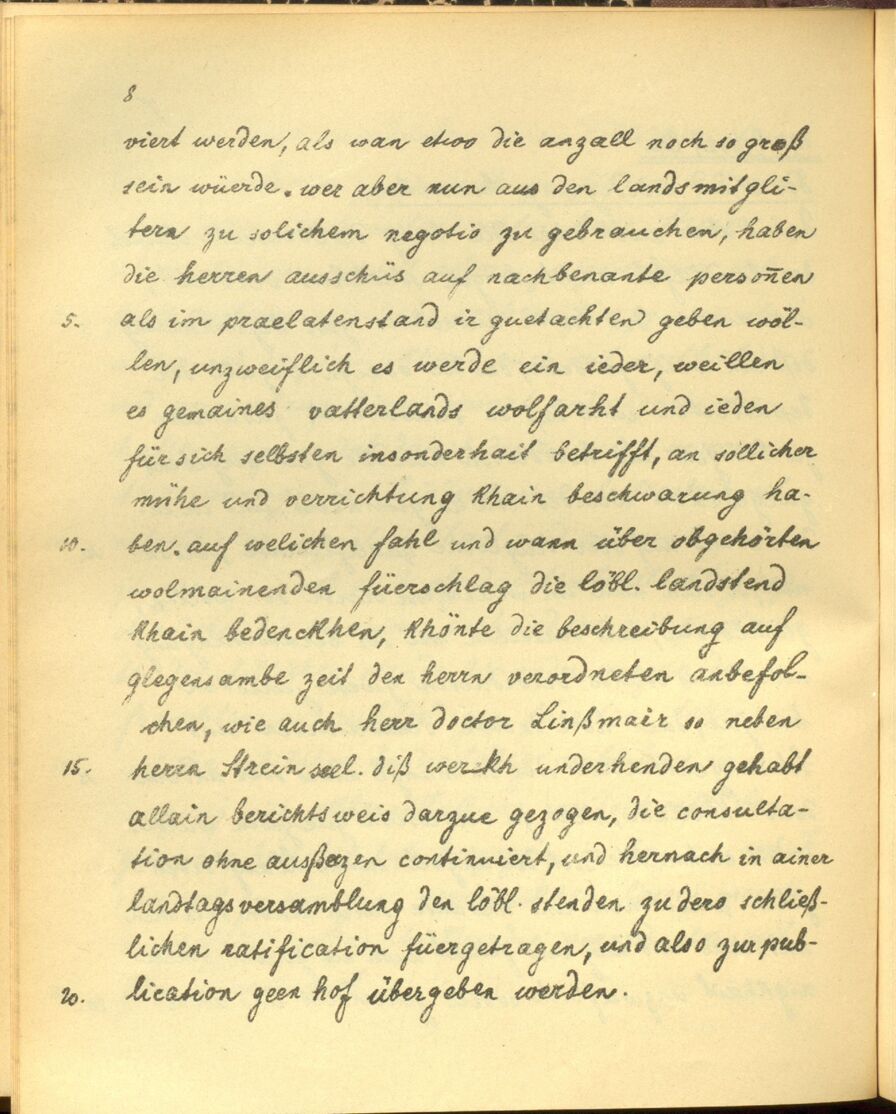 8
viert werden, als wan etwo die anzall noch so groß
sein würde. wer aber nun aus den landsmitgli-
tern zu solichem negotio zu gebrauchen, haben
die herren ausschüs auf nachbenante persoñen
5. als im praelatenstand ir guetachten geben wöl-
len, unzweiflich es werde ein ieder, weillen
es gemaines vatterlands wolfarht und ieden
für sich selbsten insonderhait betrifft, an sollicher
mühe und verrichtung khain beschwarung ha-
10. ben. auf welichen fahl und wann über obgehörten
wolmainenden füerschlag die löbl. landstend
khain bedenckhen, khönte die beschreibung auf
glegensambe zeit den herrn verordneten anbefol-
chen, wie auch herr doctor Linßmair so neben
15. herrn Strein seel. diß werckh underhenden gehabt
allain berichtsweis darzue gezogen, die consulta-
tion ohne ausßezen continuiert, und hernach in ainer
landtagsversamblung den löbl. stenden zu dero schließ-
lichen ratification füergetragen, und also zur pub-
20. lication geen hof übergeben werden.